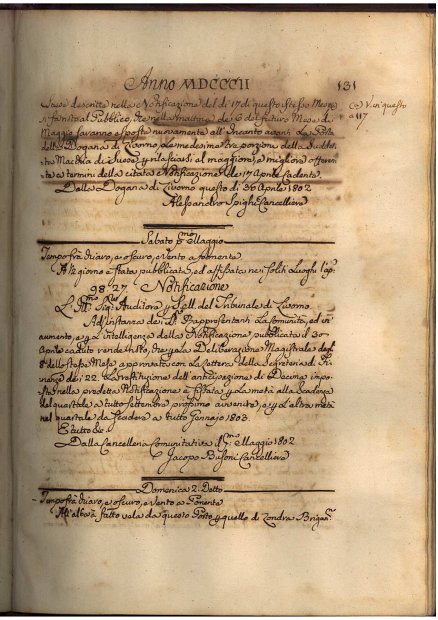 Anno MDCCCII 131
Scese descritte nella Notificazione del dì 17 di questo Stesso Mese
si fa noto al Pubblico, che nella mattina de 6 del futuro Mese di
Maggio saranno esposte nuovamente all'Incanto avanti la Porta
della Dogana di Livorno le medesime tre porzioni della suddet-
tra Macchia di Suese, e rilasciarsi al maggiore, e migliore offeren-
te a termini della citata Notificazione de 17 Aprile cadente.
Dalla Dogana di Livorno questo dì 30 Aprile 1802
Alessandro Spighi Cancelliere
(a) Vedi questo
a 117
Sabato p.mo Maggio
Tempo frà chiaro, e oscuro, e Vento a
A giorno è stata pubblicata, ed affissata nei soliti Luoghi l'
98. 27 Notificazione
L' Sig.ri Auditore, del Tribunale di Livorno
Ad instanza dei Rappresentanti la Comunità, ed in
aumento, e intelligenza della Notificazione pubblicata il 30
Aprile caduto rende noto, che la Deliberazione Magistrale
8 dello stesso Mese approvata con la Lettera della Segreteria di Fi-
nanze dei 22. La restituzione dell'anticipazione di Decima impo-
sta nella predetta Notificazione è fissata per la metà alla scadenza
del quale a tutto Settembre prossimo avvenire, e per l'altra metà
nel quale da scadere a tutto Gennajo 1803.
E tutto &c.
Dalla Cancelleria Comunitativa p.mo Maggio 1802
Jacopo Busoni Cancelliere
Domenica 2. Detto
Tempo frà chiaro, e oscuro, e Vento a Ponente
All'alba è fatto vela da questo Porto per quello di Londra Brigan.